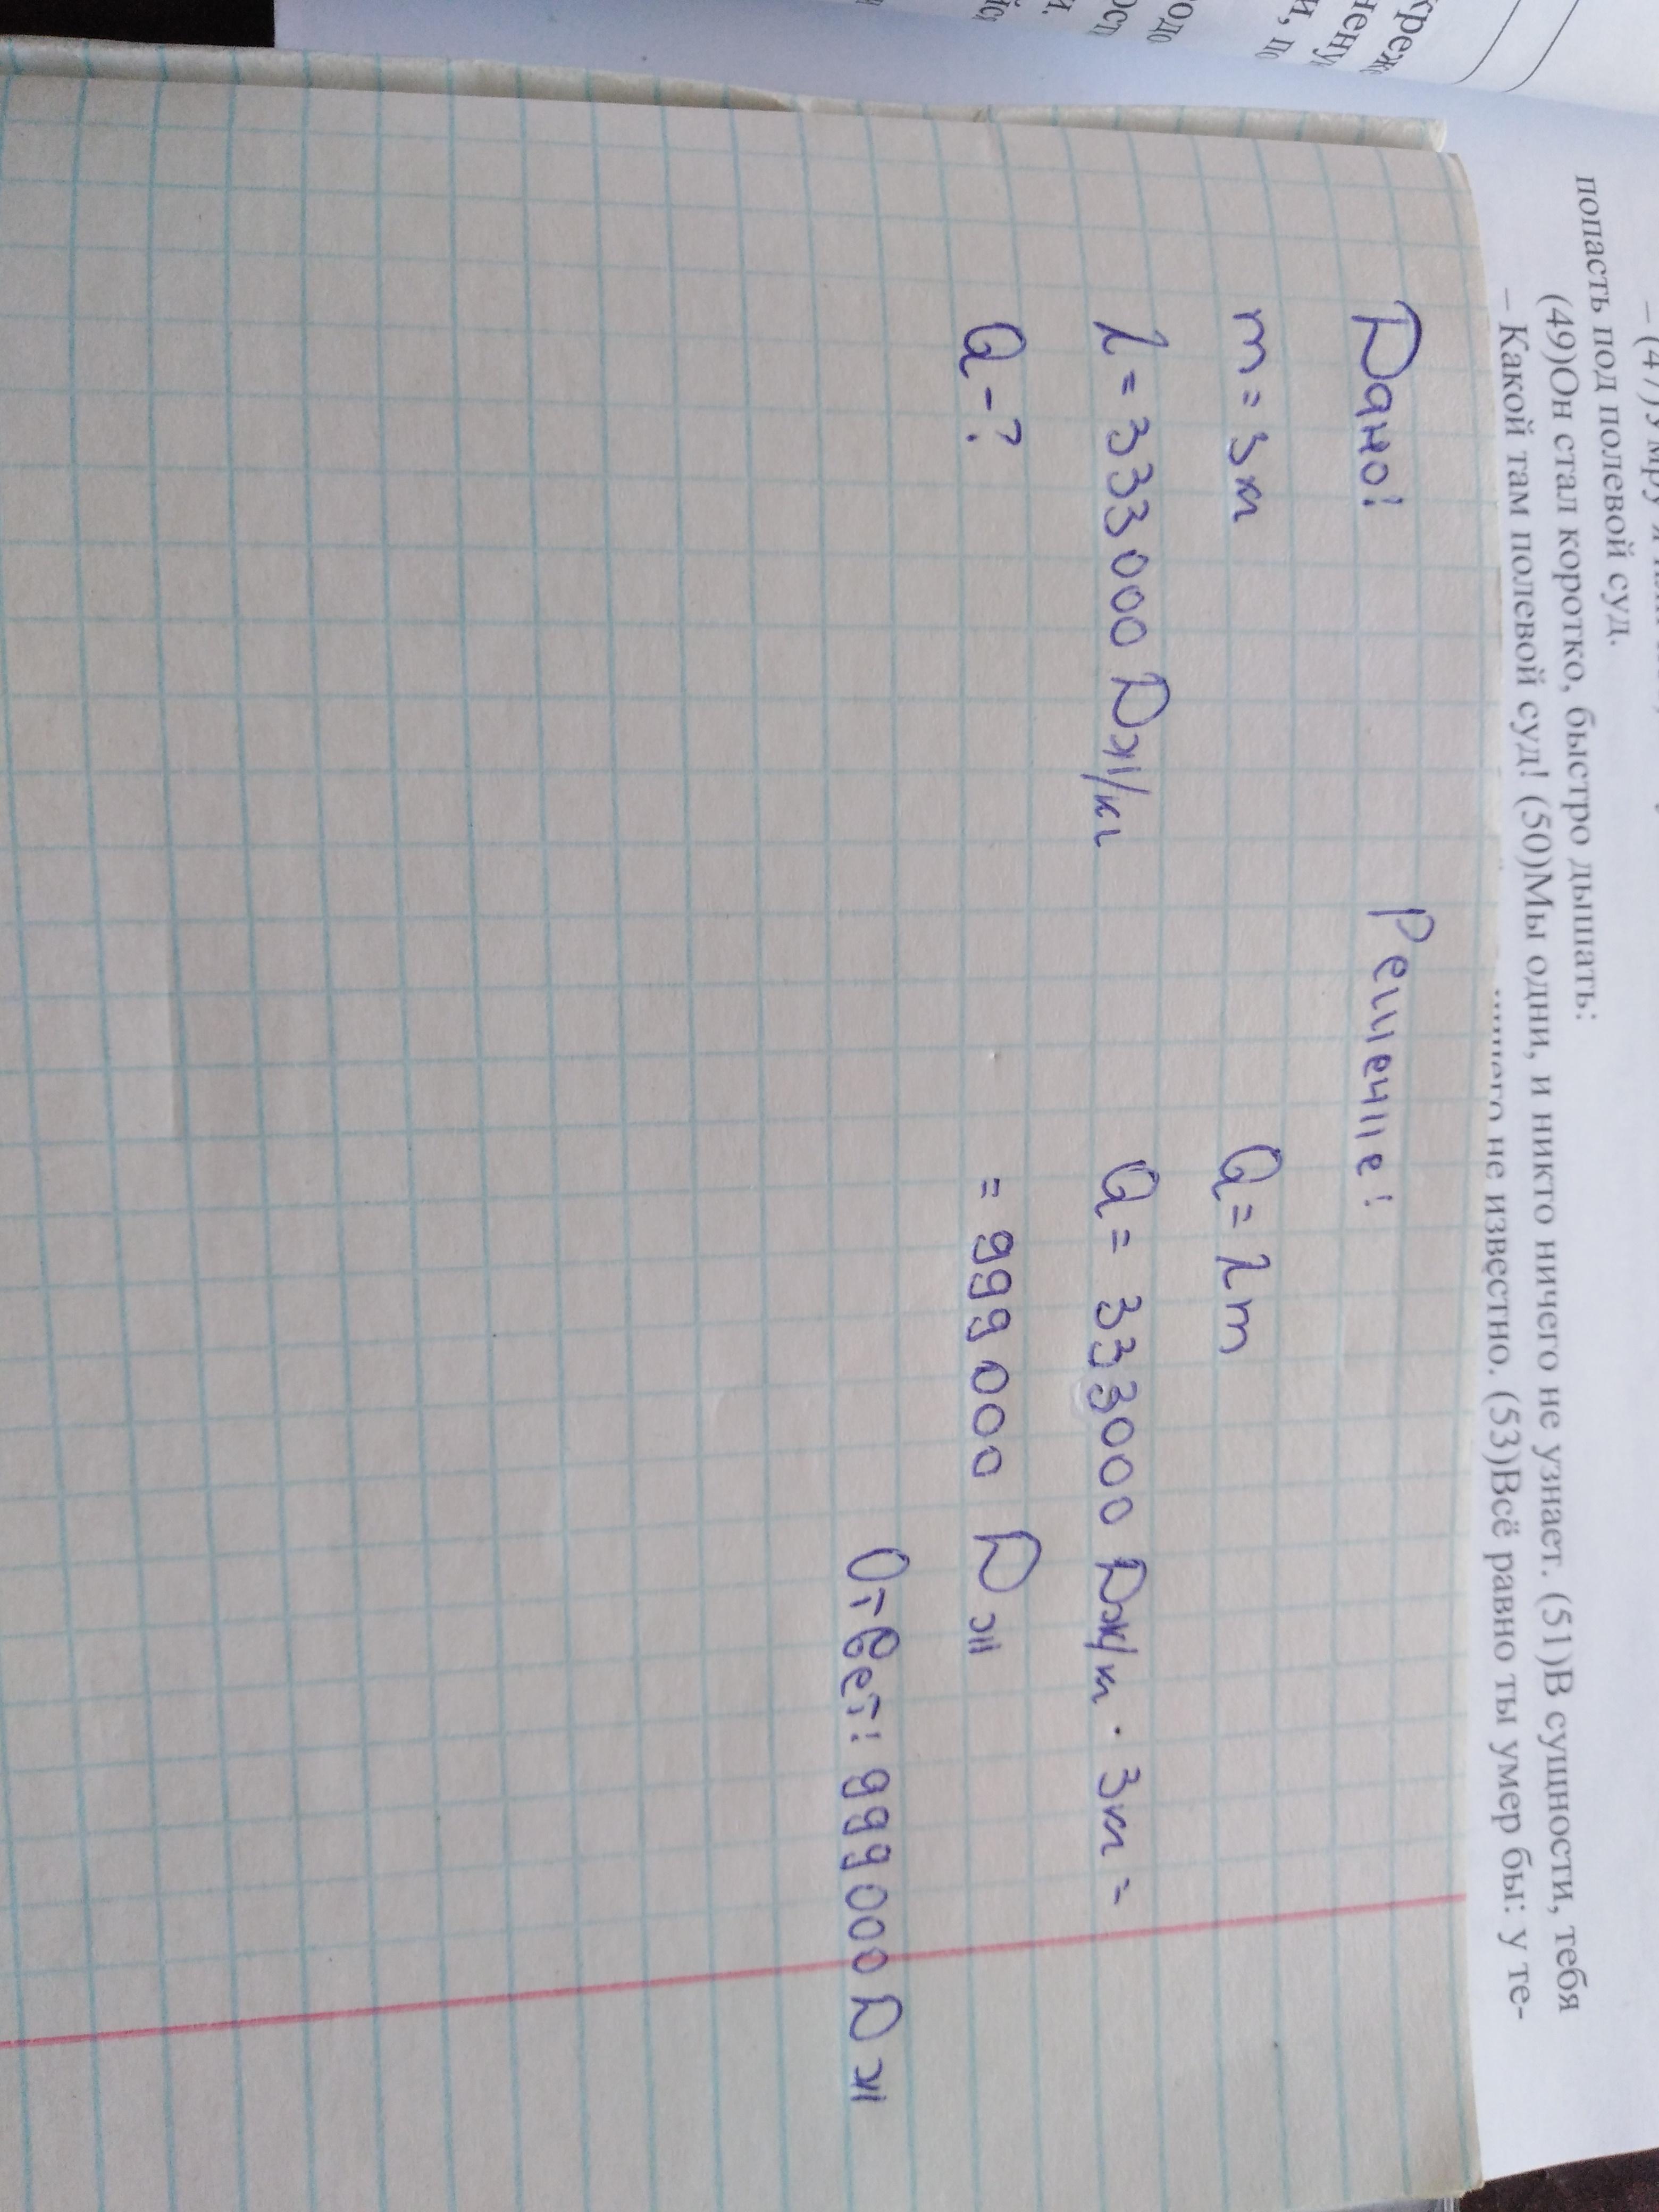 – (47)Умру я
попасть под полевой суд.
(49)Он стал коротко, быстро дышать:
– Какой там полевой суд! (50)Мы одни, и никто ничего не узнает. (51)В сущности, тебя
не известно. (53)Всё равно ты умер бы: у те-
Дано: Решение:
m = 3 кг Q = λm
λ = 333 000 Дж/кг Q = 333000 Дж/кг · 3кг =
Q - ? = 999 000 Дж
Ответ: 999 000 Дж